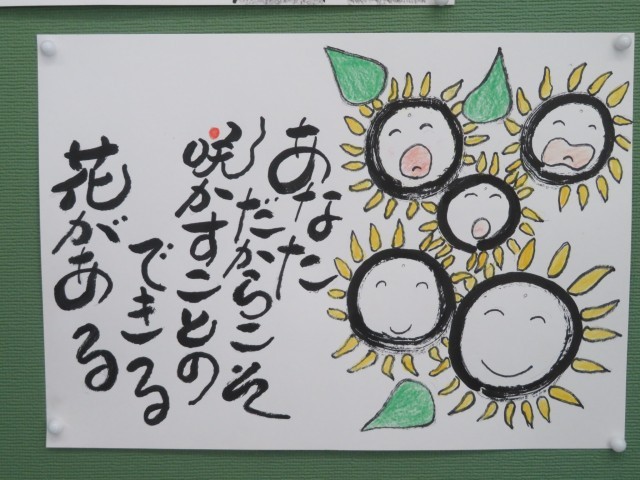 あなた
だからこそ
咲かすことの
できる
花がある